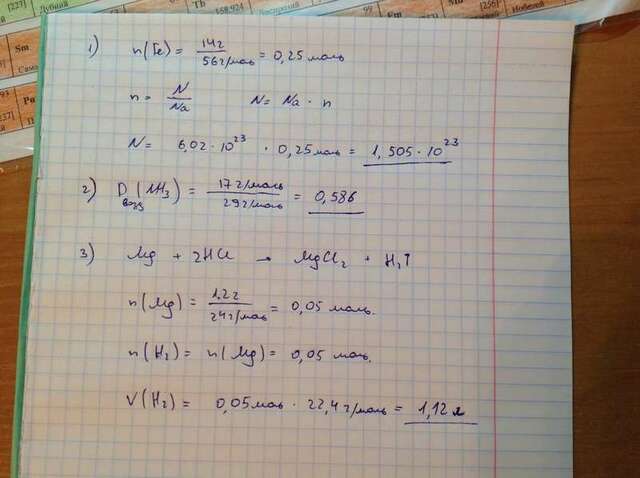 [227] Дубний
Tb
158,924
99
Fm
Md
[256]
Sm
93
[237]
1) n(Fe) = 14г / 56г/моль = 0,25 моль
n = N / Na N = Na · n
N = 6,02 · 10^23 · 0,25моль = 1,505 · 10^23
2) D возд (NH3) = 17 г/моль / 29г/моль = 0,586
3) Mg + 2HCl → MgCl2 + H2↑
n(Mg) = 1,2г / 24г/моль = 0,05 моль.
n(H2) = n(Mg) = 0,05 моль.
V(H2) = 0,05моль · 22,4г/моль = 1,12 л